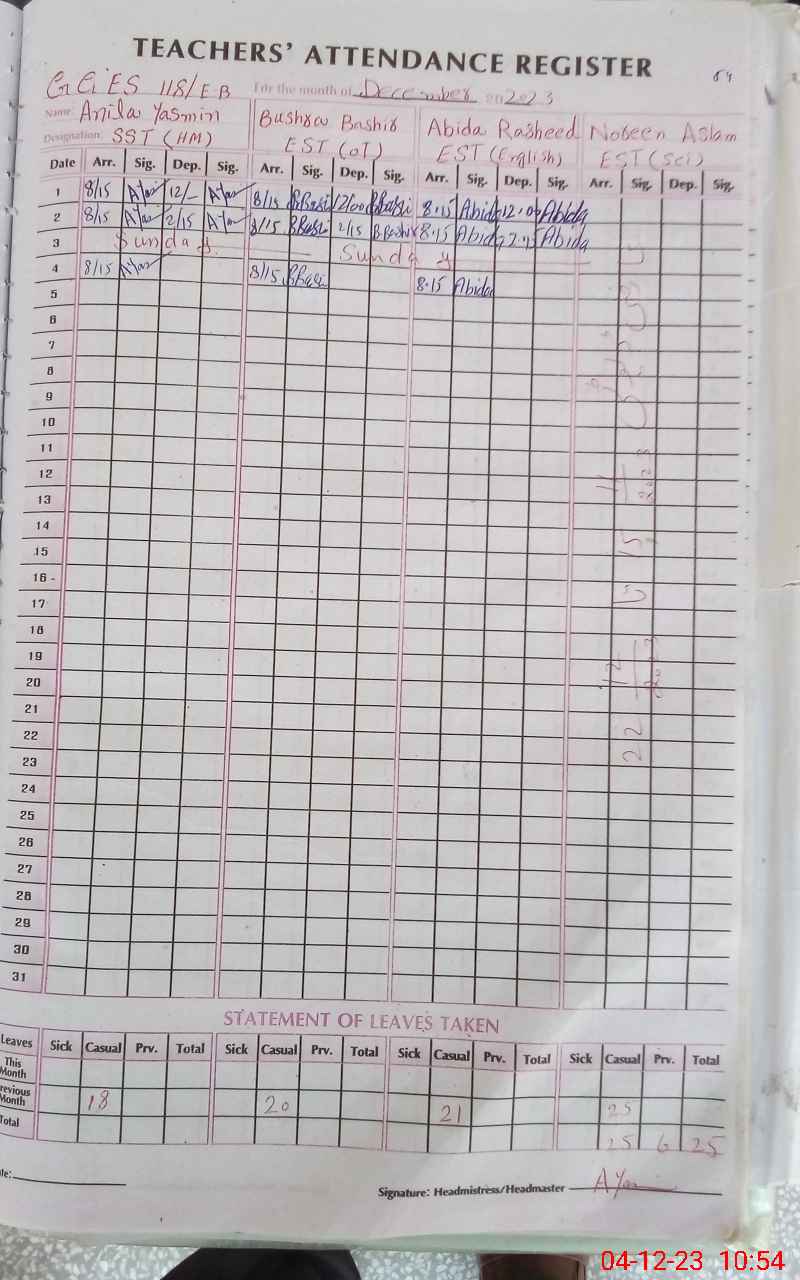 TEACHERS' ATTENDANCE REGISTER
GGES 118/E-B For the month of December 2023
Name: Anila Yasmin Bushra Bashir Abida Rasheed Nobeen Aslam
Designation: SST (HM) EST (OT) EST (English) EST (Sci)
Date Arr. Sig. Dep. Sig. Arr. Sig. Dep. Sig. Arr. Sig. Dep. Sig. Arr. Sig. Dep. Sig.
1 8/15 12/- 8/15 12/00 8.15 Abida 12.00 Abida
2 8/15 2/15 8/15 2/15 8.15 Abida 2.15 Abida
3 Sunday Sunday
4 8/15 8/15 8.15 Abida
5
6
7
8
9
10
11
12
13
14
15
16
17
18
19
20
21
22
23
24
25
26
27
28
29
30
31
STATEMENT OF LEAVES TAKEN
Leaves Sick Casual Prv. Total Sick Casual Prv. Total Sick Casual Prv. Total Sick Casual Prv. Total
This Month
revious Month 18 20 21 25
Total 25 6 25
te:
Signature: Headmistress/Headmaster
04-12-23 10:54